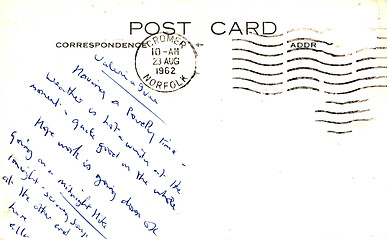 POST CARD
CORRESPONDENCE
ADDR
CROMER
10-AM
23 AUG
1962
NORFOLK
Having a lovely time -
weather is hot & windy at the
moment & quite good on the whole
Hope work is going down OK
Going on a midnight hike
tonight -
at the other end
here